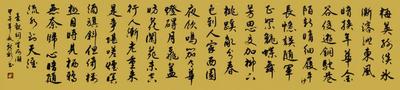 梅英疏淡冰
澌溶洩東風
暗換年華金
谷俊遊銅駝巷
陌新晴細履平
沙長記誤隨車
正絮翻蝶舞
芳思交加柳下
桃蹊亂分春
色到人家西園
夜飲鳴笳有華
燈礙月飛蓋
妨花蘭苑未空
行人漸老重來
是事堪嗟煙暝
酒旗斜但倚樓
極目時見棲鴉
無奈歸心暗隨
流水到天涯
秦觀詞望海潮